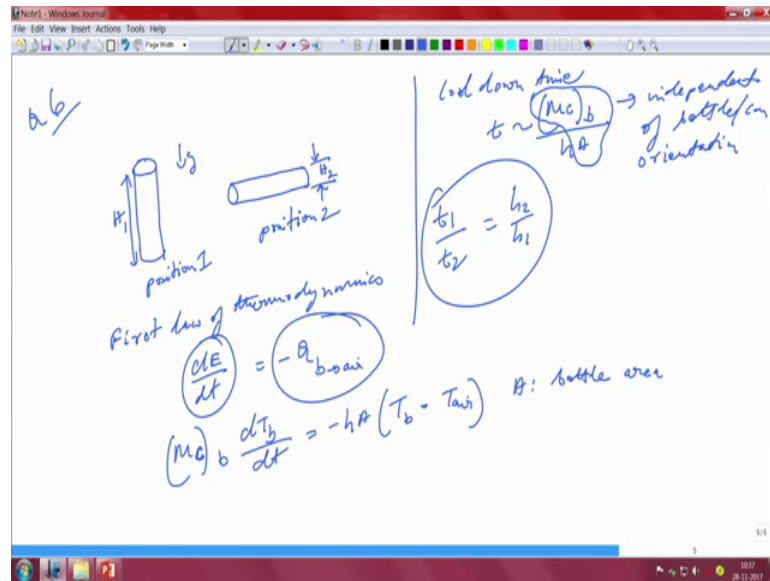 Note1 - Windows Journal
File Edit View Insert Actions Tools Help
Page Width
B I
Q6
H1
↓g
position 1
H2
position 2
First law of thermodynamics
dE/dt = - Q b→air
(mc)b dTb/dt = -hA (Tb - Tair) A: bottle area
Cool down time
t ~ (mc)b / hA → independent
of bottle/can
orientation
t1/t2 = h2/h1
5
5/5
10:37
28-11-2017